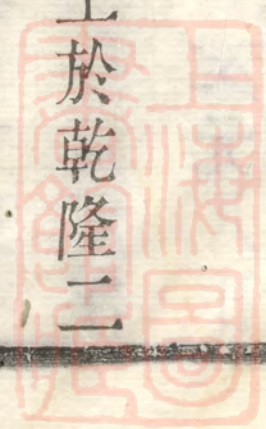 於乾隆二
上海圖
書館藏